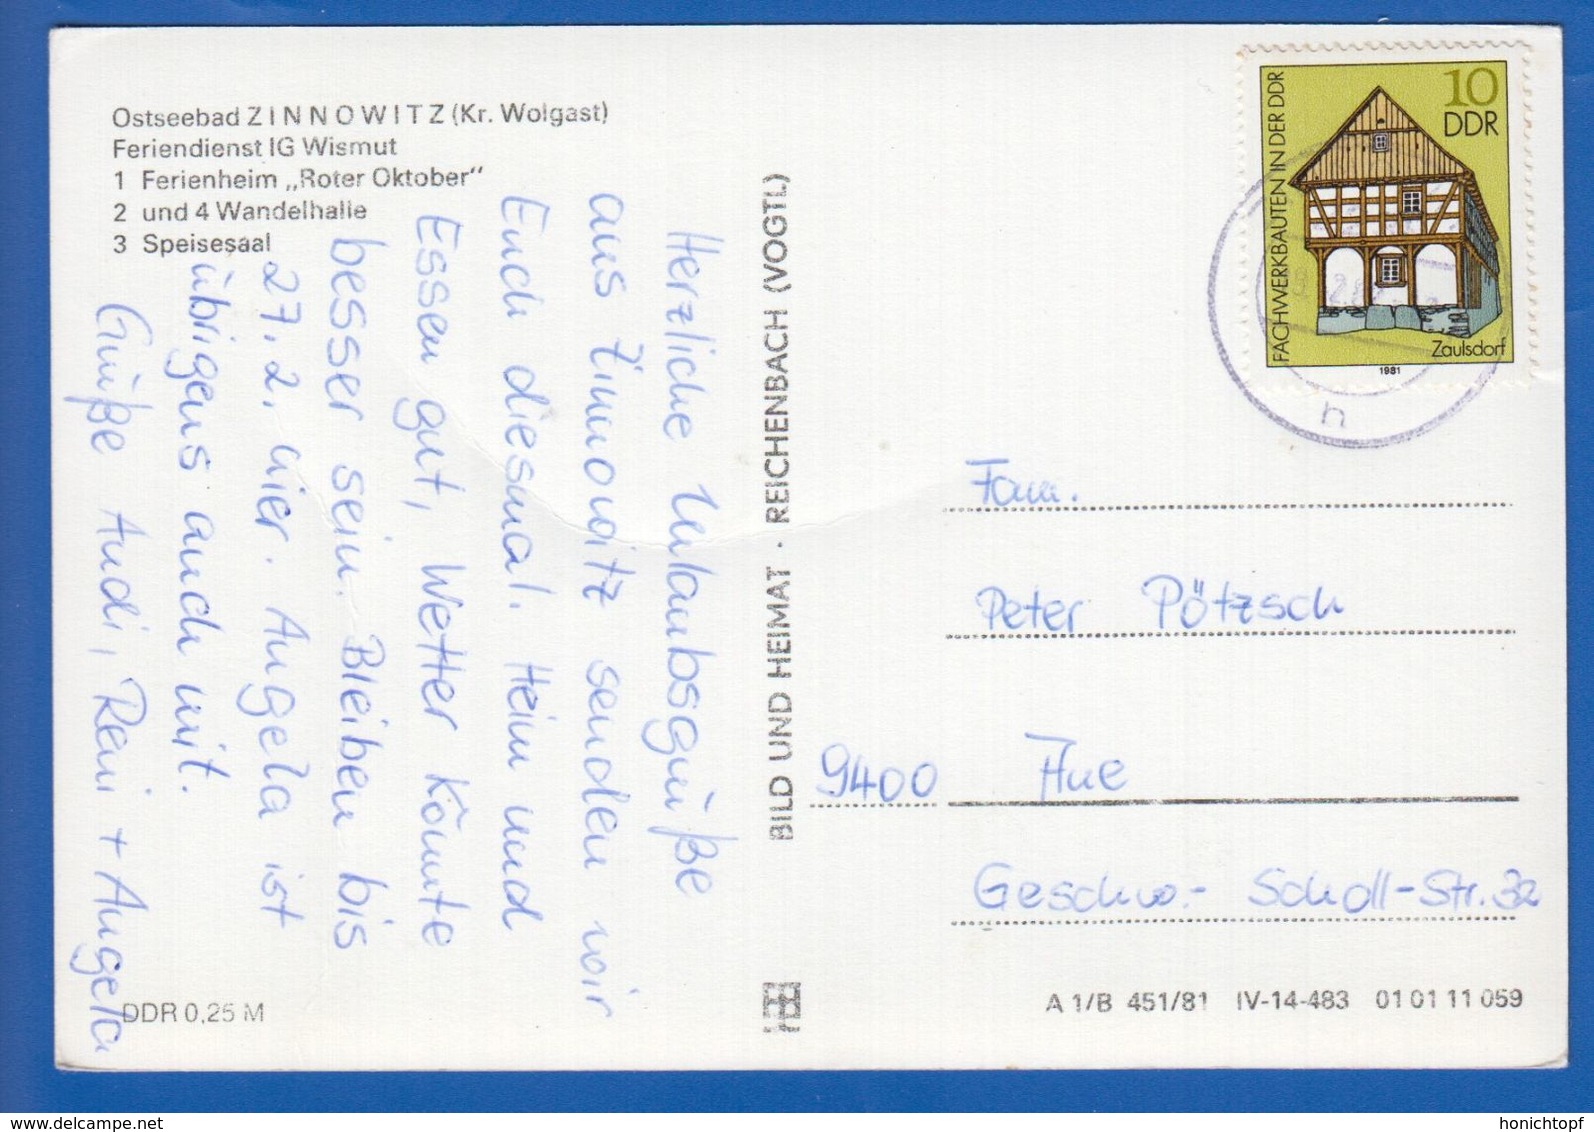 Ostseebad ZINNOWITZ (Kr. Wolgast)
Feriendienst IG Wismut
1 Ferienheim „Roter Oktober“
2 und 4 Wandelhalle
3 Speisesaal
Herzliche Urlaubsgrüße
aus Zinnowitz senden wir
Euch diesmal. Heim und
Essen gut, Wetter könnte
besser sein. Bleiben bis
27.2. hier. Angela ist
übrigens auch mit.
Grüße Andi, Reni + Angela
DDR 0,25 M
BILD UND HEIMAT · REICHENBACH (VOGTL)
FACHWERKBAUTEN IN DER DDR
10
DDR
Zaulsdorf
1981
h
Fam.
Peter Pötzsch
9400 Aue
Geschw.-Scholl-Str. 32
A 1/B 451/81 IV-14-483 01 01 11 059
www.delcampe.net
honichtopf